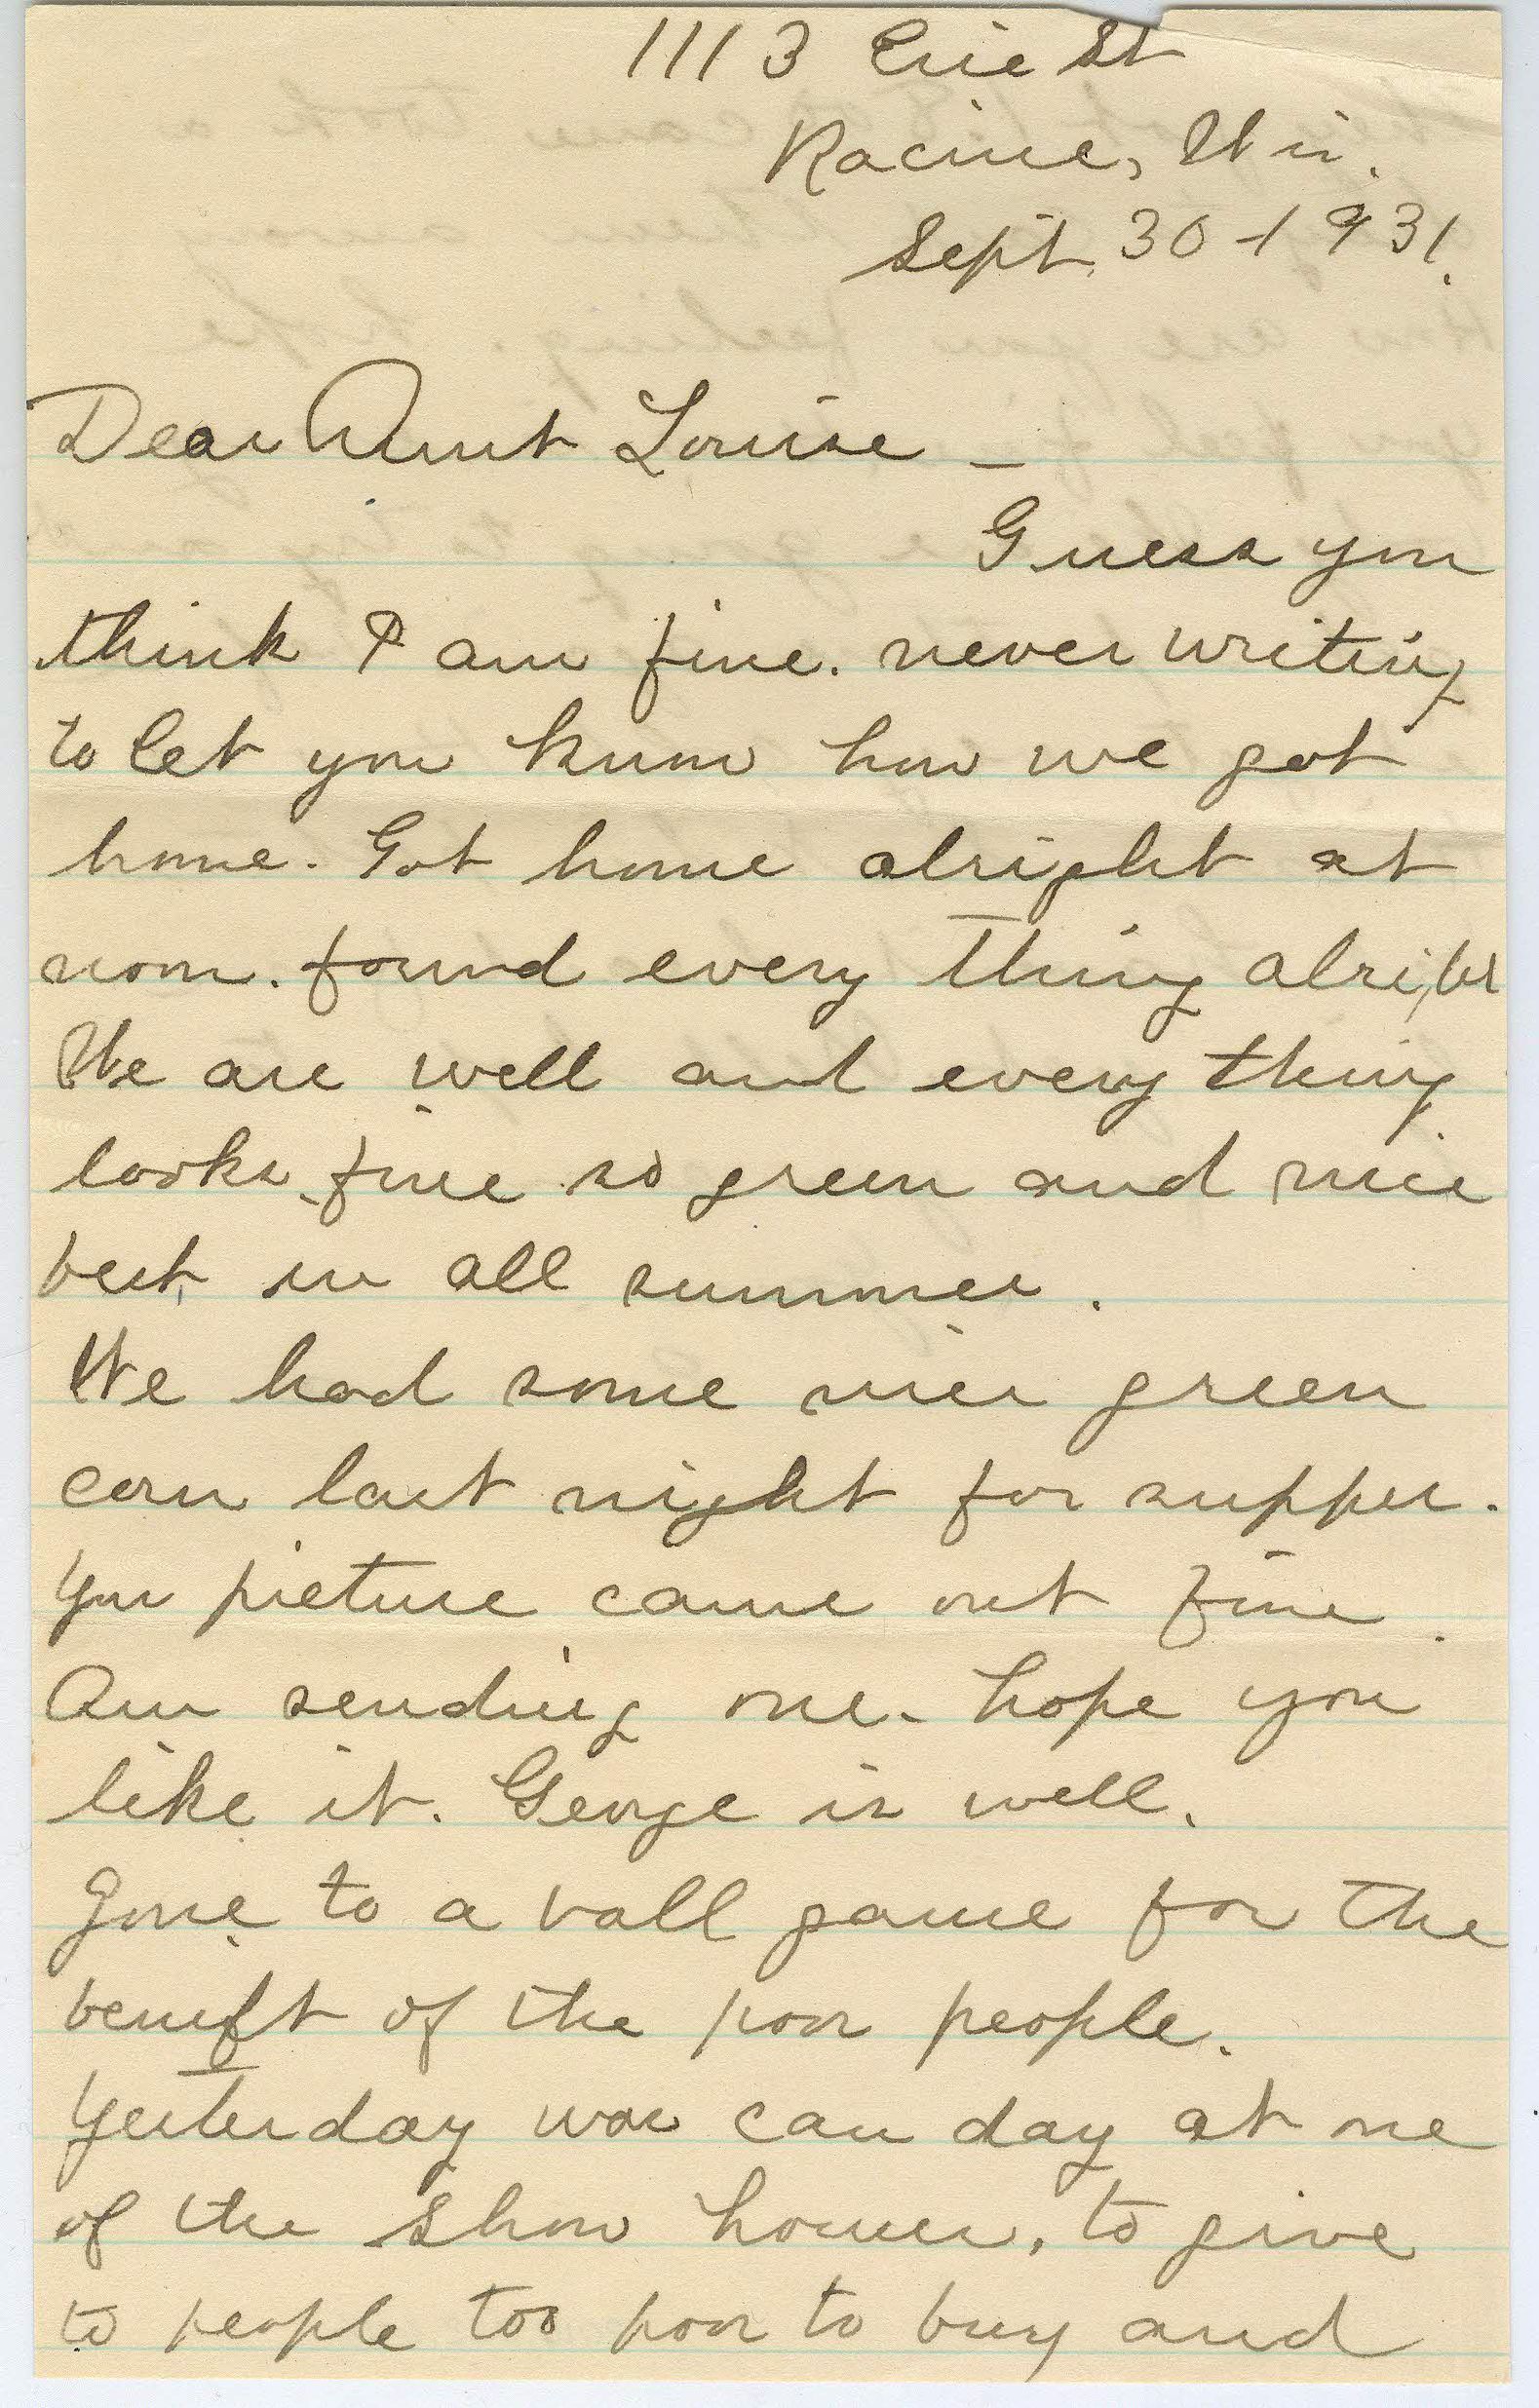 1113 Erie St
Racine, Wis.
Sept. 30-1931.
Dear Aunt Louise –
Guess you
think I am fine. never writing
to let you know how we got
home. Got home alright at
noon. found every thing alright
We are well and every thing
looks fine so green and nice
best in all summer.
We had some nice green
corn last night for supper.
Your picture came out fine.
Am sending one. hope you
like it. George is well.
Gone to a ball game for the
benift of the poor people.
Yesterday was can day at one
of the show houses, to give
to people too poor to buy and